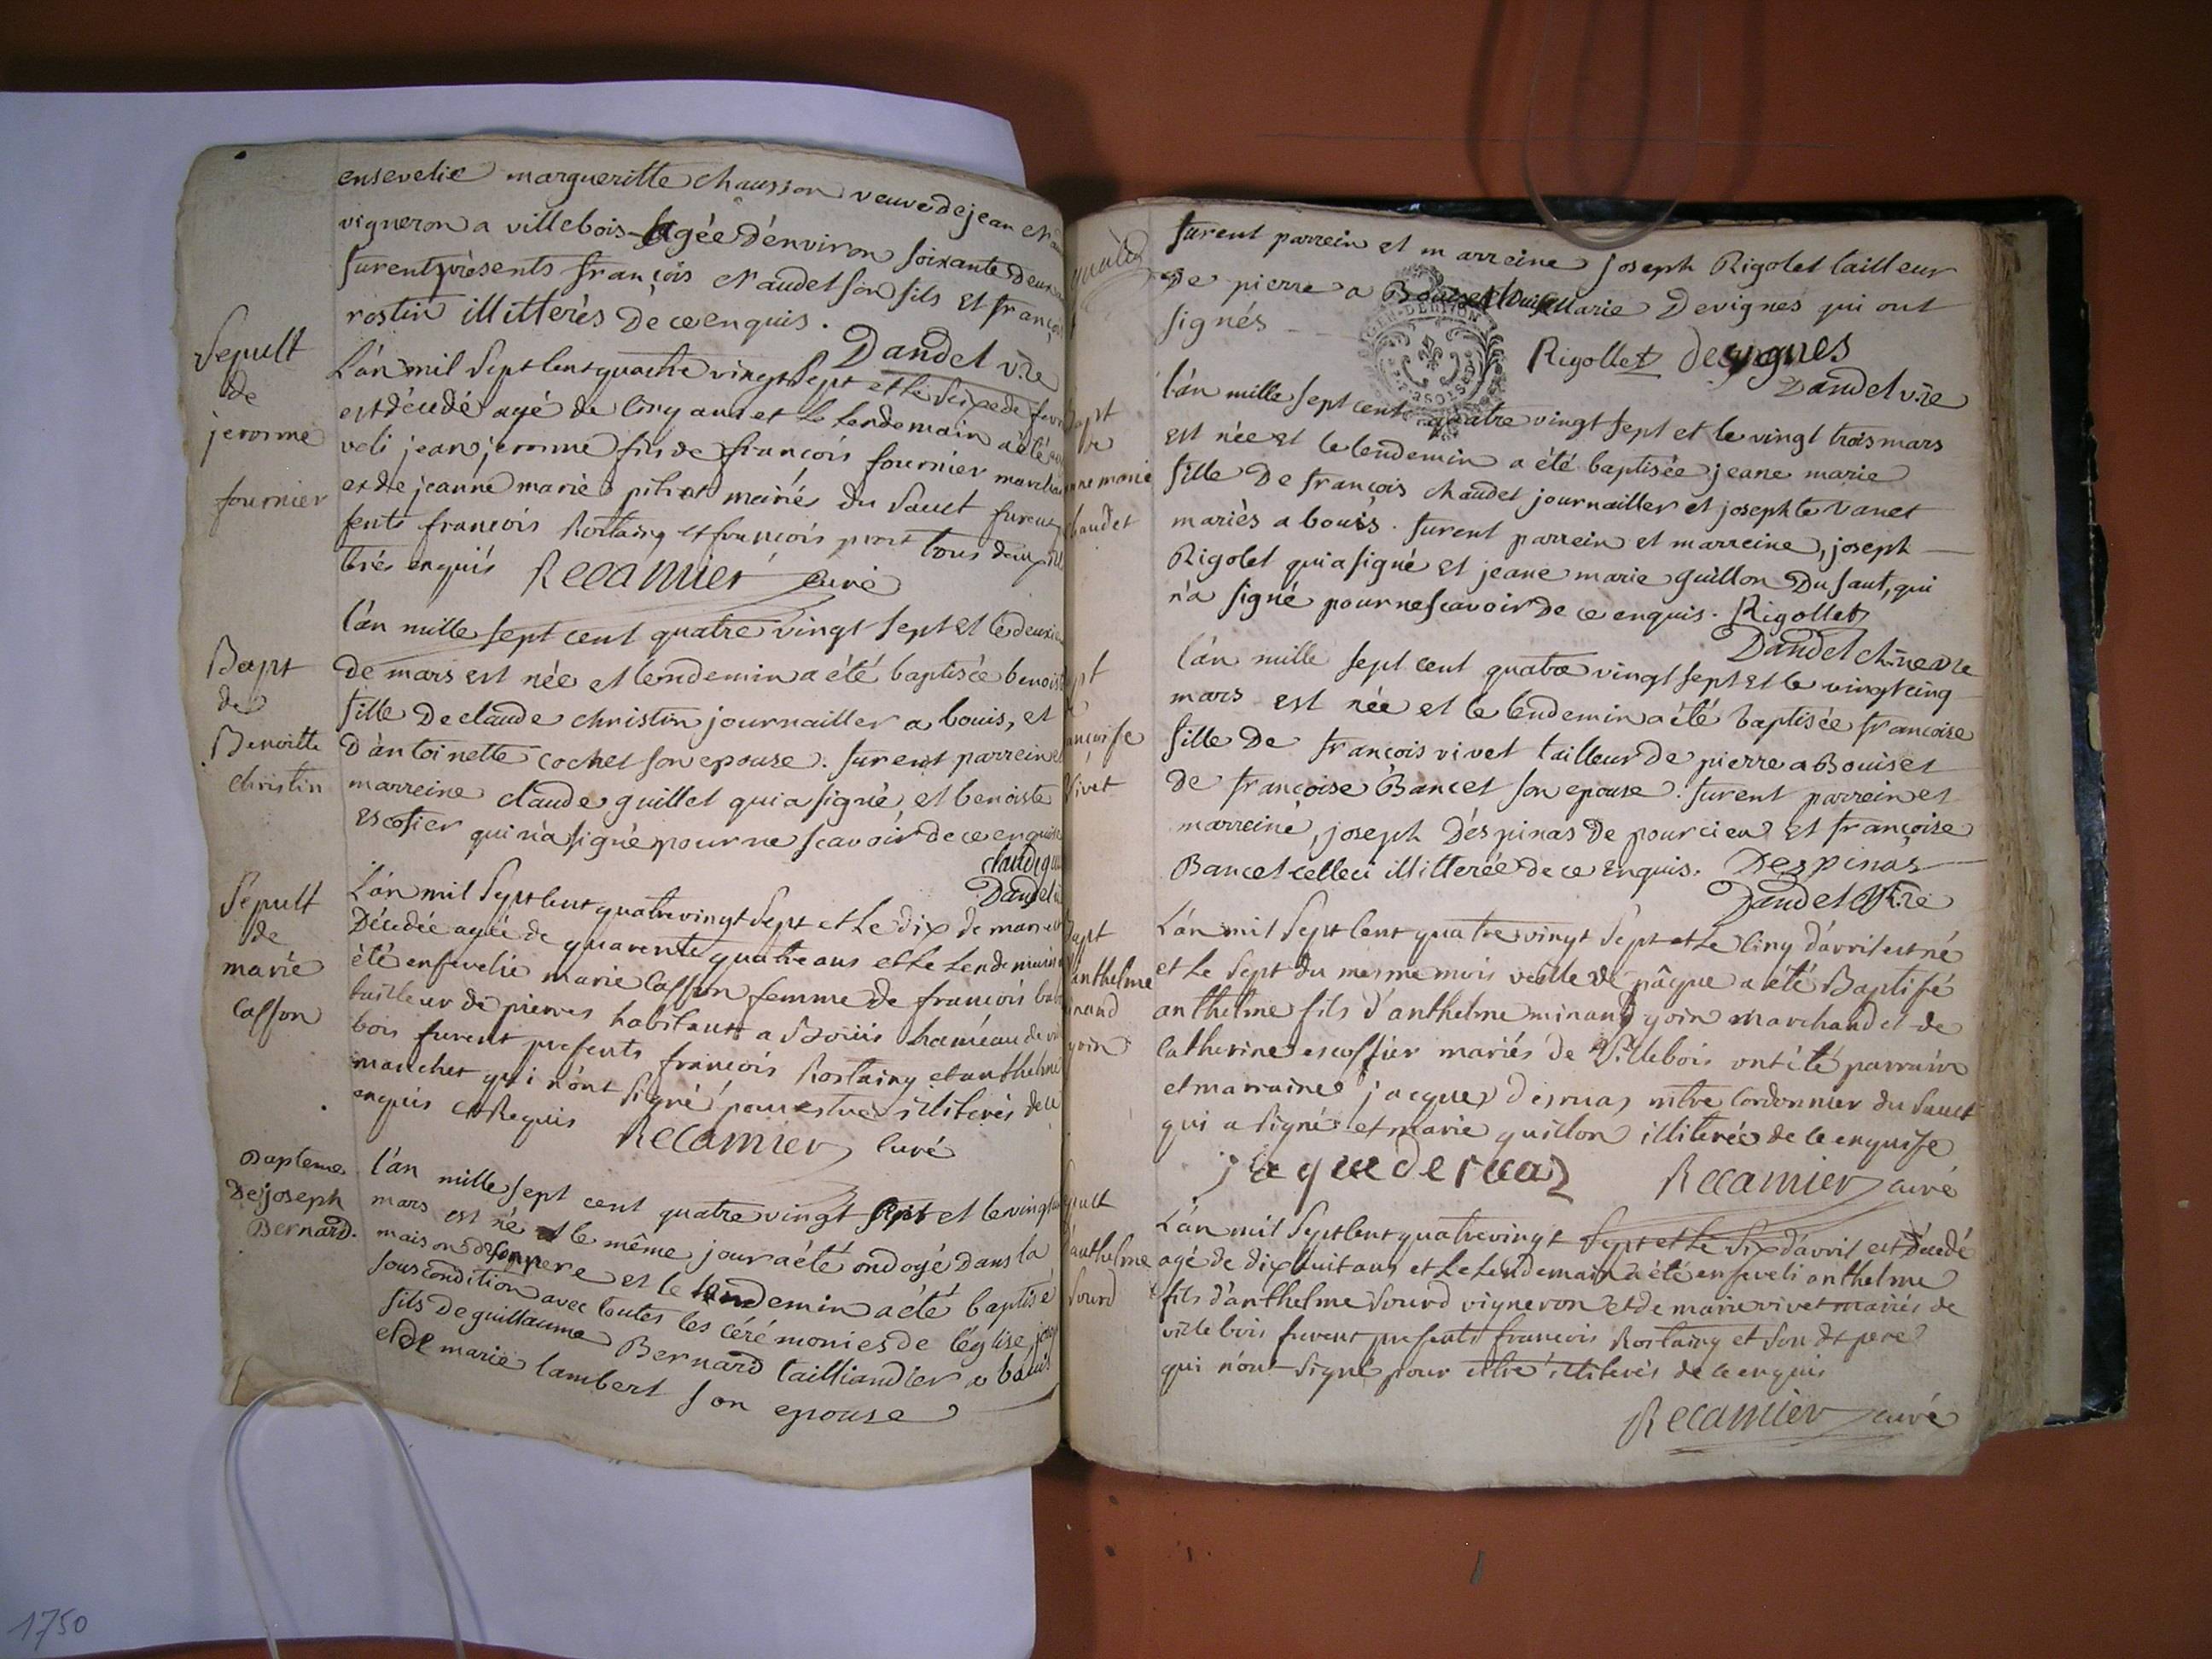 ensevelie margueritte chausson veuve de jean
vigneron a villebois agée d'environ soixante deux
furent présents françois Naudet son fils et françois
rostin illitterés de ce enquis.
Dandel v.re
Sepult
de
jeromme
fournier
L'an mil sept cent quatre vingt sept et le seize de
est décedé agé de cinq ans et le lendemain a été
veli jean jeromme fils de françois fournier
et de jeanne marie mariés du Sault furent
sents francois Rostaing et francois tous deux
terés enquis Recamier curé
Bapt
de
Benoitte
christin
l'an mille sept cent quatre vingt sept et le
de mars est née et lendemin a été baptisée
fille de claude christin journailler a bouis, et
d'antoinette cochet son epouse. furent parrein et
marreine claude guillet qui a signé, et benoiste
escofier qui n'a signé pour ne scavoir de ce enquise
Dandel
Sepult
de
marie
Casson
L'an mil sept cent quatre vingt sept et le dix de mars
Décedée agée de quarente quatre ans et le lendemain
été ensevelie marie Casson femme de francois
tailleur de pierres habitant a Bouis haméau de
bois furent presents francois Rostaing et anthelme
marchet qui n'ont signé pour estre illiterés de ce
enquis et Requis Recamier curé
Bapteme
De joseph
Bernard.
l'an mille sept cent quatre vingt sept et le vingt
mars est né et le même jour a été ondoyé dans la
maison de son pere et le lendemin a été baptisé
sous condition avec toutes les cérémonies de l'église
fils de guillaume Bernard tailliandier a bouis
et de marie lambert son epouse
furent parrein et marreine joseph Rigolet tailleur
de pierre a Marie Devignes qui ont
signés
Rigollet devignes
Dandel v.re
l'an mille sept cent quatre vingt sept et le vingt trois mars
est née et le lendemin a été baptisée jeane marie
fille de françois chaudet journailler et josephte vanet
mariés a bouis. furent parrein et marreine, joseph
Rigolet qui a signé et jeane marie guillon du saut, qui
n'a signé pour ne scavoir de ce enquis. Rigollet
Dandel
l'an mille sept cent quatre vingt sept et le vingt cinq
mars est née et le lendemin a été baptisée francoise
fille de françois vivet tailleur de pierre a Bouis et
de françoise Bancet son epouse. furent parrein et
marreine, joseph déspinas de pourcieu et françoise
Bancet celleci illitterée de ce enquis. Despinas
Dandel
anthelme
L'an mil sept cent quatre vingt sept et le cinq d'avril est né
et le sept du mesme mois veille de pâque a été Baptisé
anthelme fils d'anthelme minand goin marchand et de
catherine escoffier mariés de Villebois ont été parrain
et marraine jacques deruaz mtre cordonnier du Sault
qui a signé et marie guillon illiterée de ce enquisse
jaque deruaz Recamier curé
anthelme
Sourd
L'an mil sept cent quatre vingt sept et le six d'avril est décedé
agé de dix huit ans et le lendemain a été enseveli anthelme
fils d'anthelme Sourd vigneron et de marie vivet mariés de
ville bois furent presents francois Rostaing et son dt pere
qui n'ont signé pour estre illiterés de ce enquis
Recamier curé
1750